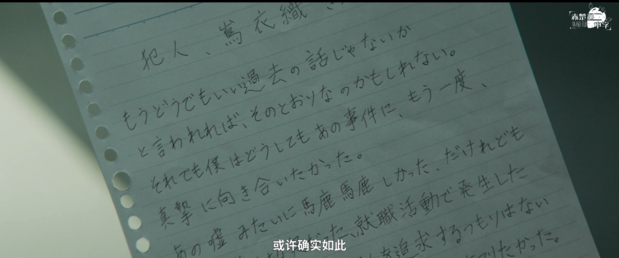 犯人、嶌衣織さ
もうどうでもいい過去の話じゃないか
と言われれば、そのとおりなのかもしれない。
それでも僕はどうしてもあの事件に、もう一度、
真摯に向き合いたかった。
あの嘘みたいに馬鹿馬鹿しかった、だけれども
だった、就職活動で発生した
を追求するつもりはない
りたかった。
或许确实如此